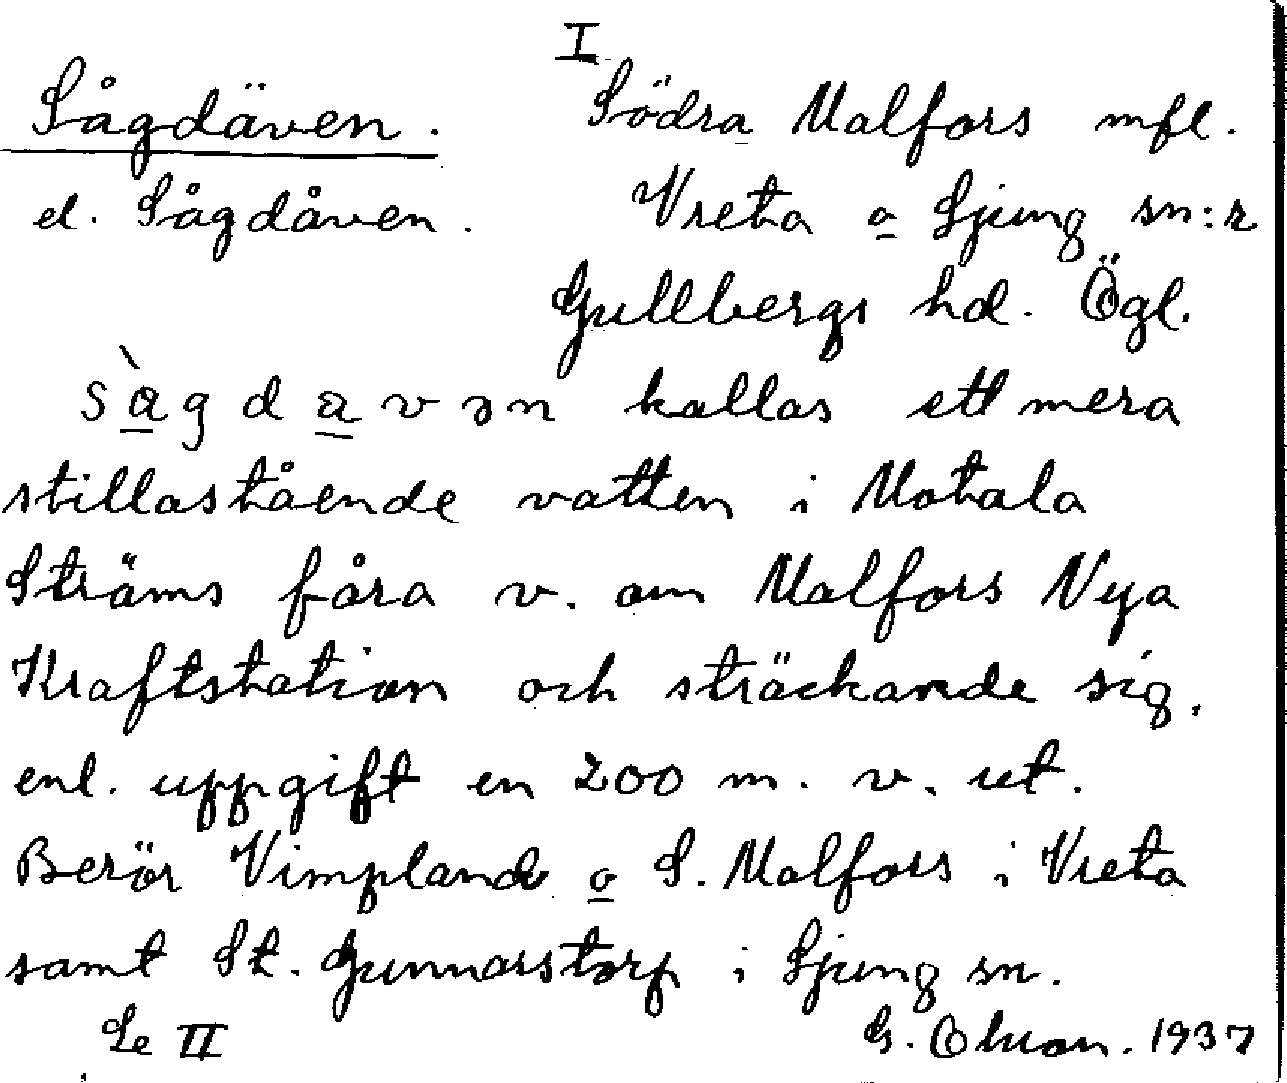 I
Sågdäven. Södra Malfors mfl.
el. Sågdåven. Vreta o Ljung sn:r
Gullbergs hd. Ögl.
sàgdavən kallas ett mera
stillastående vatten i Motala
Ströms fåra v. om Malfors Nya
Kraftstation och sträckande sig,
enl. uppgift en 200 m. v. ut.
Berör Vimpland o S. Malfors i Vreta
samt St. Gunnarstorp i Ljung sn.
Se II G. Olson. 1937